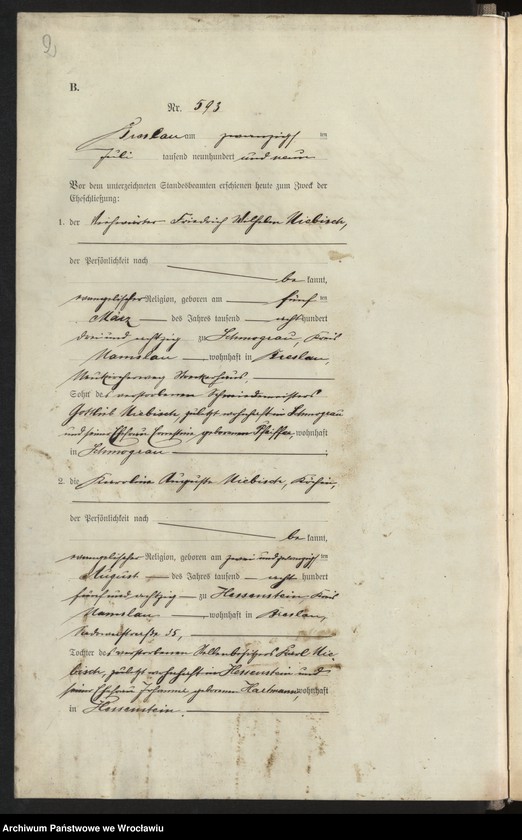 2
B.
Nr. 593
Breslau am zwanzigsten
Juli tausend neunhundert und neun
Vor dem unterzeichneten Standesbeamten erschienen heute zum Zweck der
Eheschließung:
1. der Friedrich Wilhelm Niebisch,
der Persönlichkeit nach
bekannt,
evangelischer Religion, geboren am fünften
März des Jahres tausend achthundert
drei und achtzig zu Schmograu, Kreis
Namslau wohnhaft in Breslau,
Sohn des verstorbenen Schmiedemeisters
Gottlieb Niebisch, zuletzt wohnhaft in Schmograu
und seiner Ehefrau Ernestine, geborenen Pfeiffer, wohnhaft
in Schmograu
2. die Karoline Auguste Niebisch, Köchin,
der Persönlichkeit nach
bekannt,
evangelischer Religion, geboren am zwei und zwanzigsten
August des Jahres tausend achthundert
fünf und achtzig zu Hessenstein, Kreis
Namslau wohnhaft in Breslau,
35,
Tochter des verstorbenen Stellenbesitzers Karl Nie-
bisch, zuletzt wohnhaft in Hessenstein und
seiner Ehefrau Johanne geborenen Hartmann, wohnhaft
in Hessenstein
Archiwum Państwowe we Wrocławiu